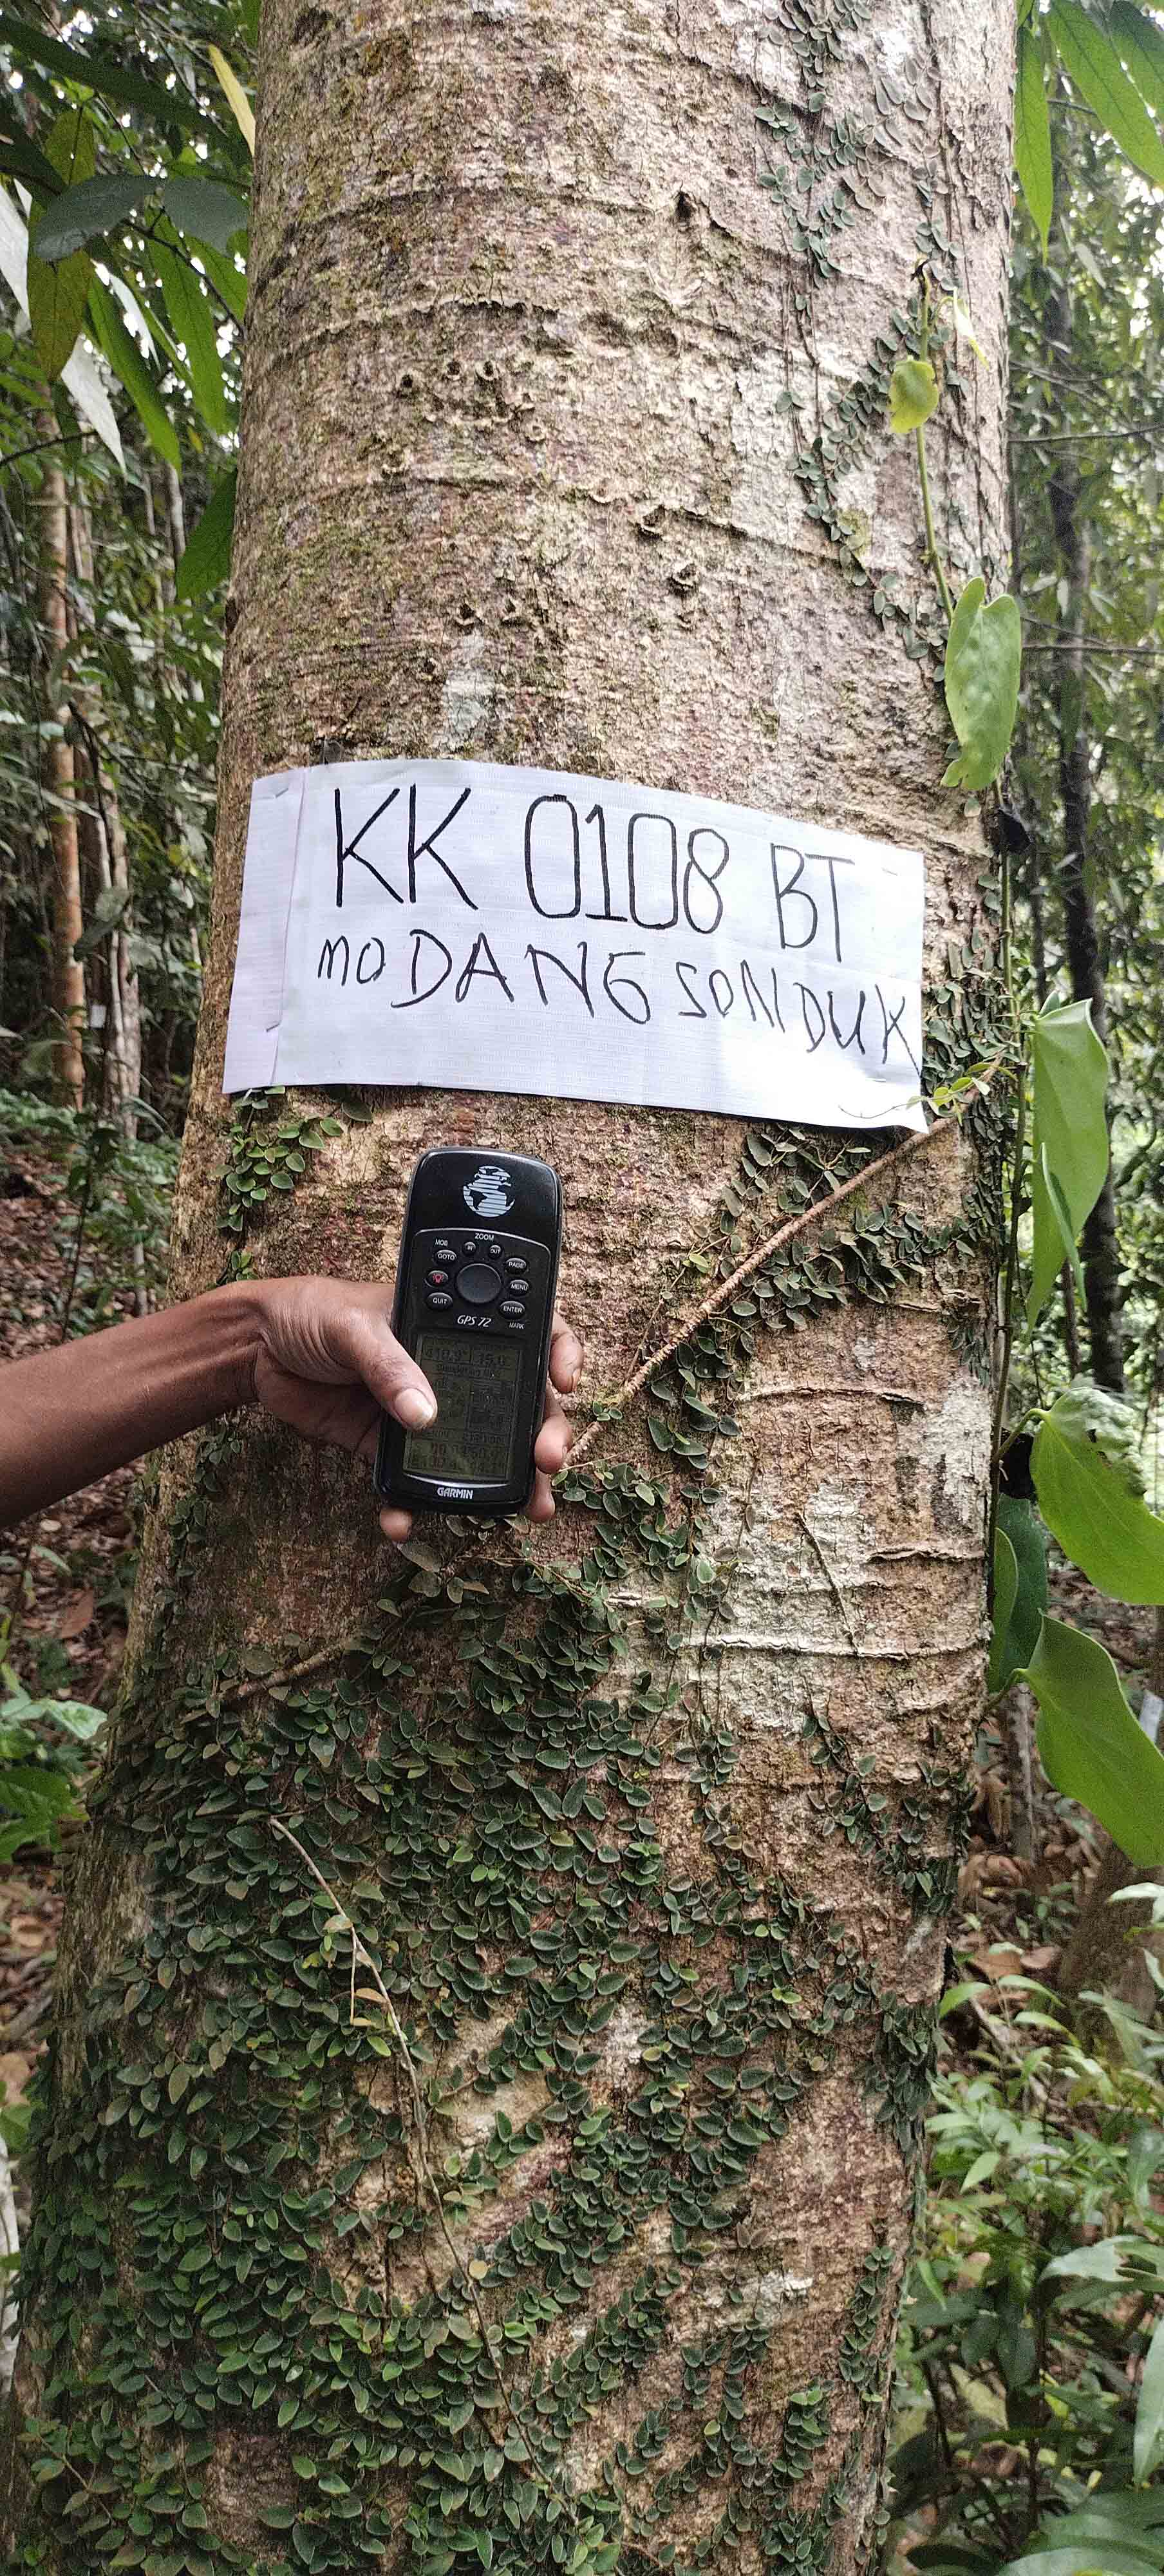 KK 0108 BT
MODANG SONDUK
ZOOM
MOB IN OUT
GOTO PAGE
MENU
QUIT ENTER
GPS 72 MARK
GARMIN